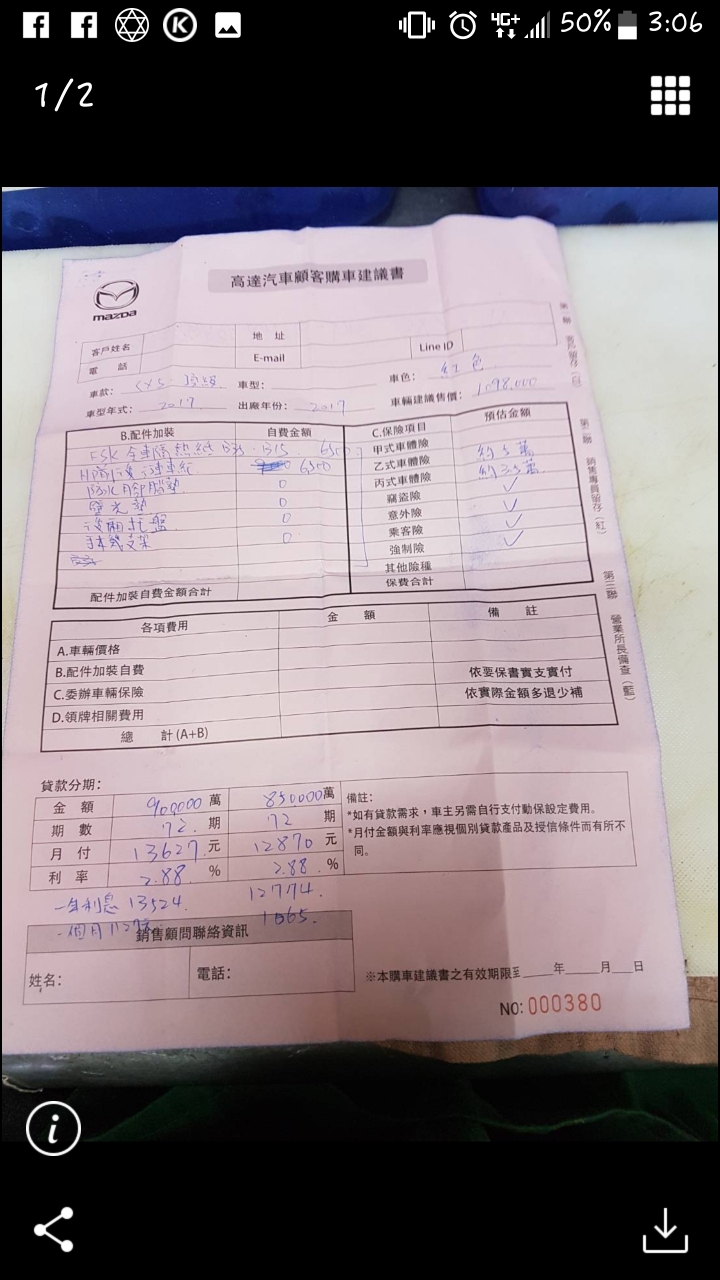 4G+ 50% 3:06
1/2
高達汽車顧客購車建議書
mazda
客戶姓名 地址
電話 E-mail Line ID
車款: CX5 車型: 車色: 紅色
車型年式: 2017 出廠年份: 2017 車輛建議售價: 1098,000
B.配件加裝 自費金額
FSK 全車隔熱紙
6500
0
0
後廂托盤 0
手機支架 0
配件加裝自費金額合計
C.保險項目 預估金額
甲式車體險
乙式車體險 約5萬
丙式車體險 約3.5萬
竊盜險 ✓
意外險 ✓
乘客險 ✓
強制險 ✓
其他險種
保費合計
各項費用 金額 備註
A.車輛價格
B.配件加裝自費
C.委辦車輛保險 依要保書實支實付
D.領牌相關費用 依實際金額多退少補
總計(A+B)
貸款分期:
金額 900000萬 850000萬
期數 72期 72期
月付 13627元 12870元
利率 2.88% 2.88%
一年利息 13524 12774
一個月 1065
備註:
*如有貸款需求，車主另需自行支付動保設定費用。
*月付金額與利率應視個別貸款產品及授信條件而有所不同。
銷售顧問聯絡資訊
姓名: 電話:
※本購車建議書之有效期限至___年___月___日
NO: 000380
第二聯 銷售專員留存(紅)
第三聯 營業所長備查(藍)